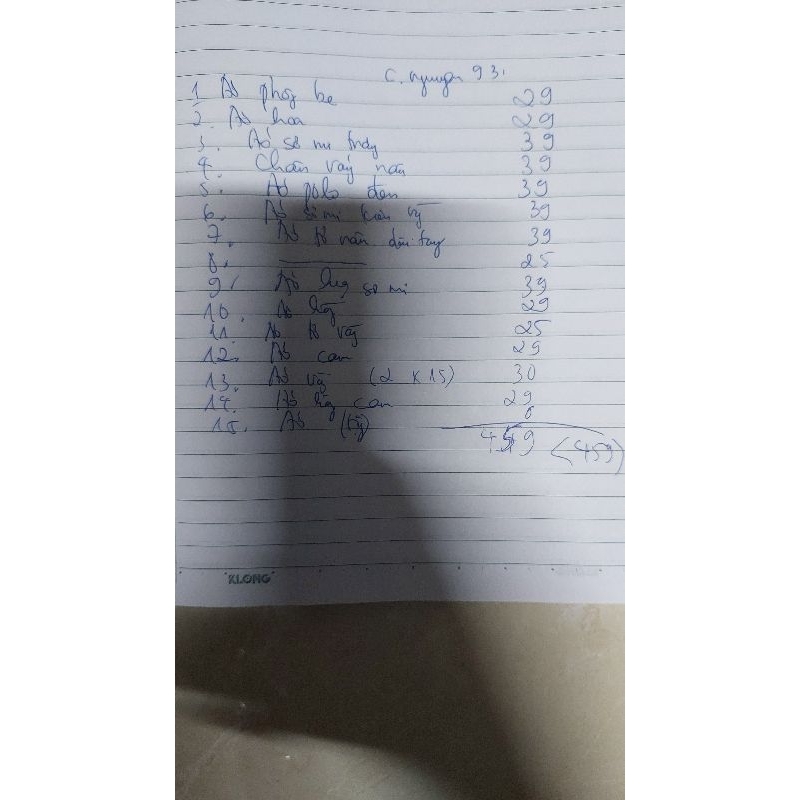 C. Nguyen 93.
1 Áo phông be 29
2. Áo hoa 29
3. Áo sơ mi 39
4. Chân váy nâu 39
5. Áo polo đen 39
6. Áo sơ mi 39
7. Áo nâu dài tay 39
8. 25
9. Áo sơ mi 39
10. Áo 29
11. Áo 25
12. Áo cam 29
13. Áo (2 x 15) 30
14. Áo cam 29
15. Áo 0
459 (459)
KLONG